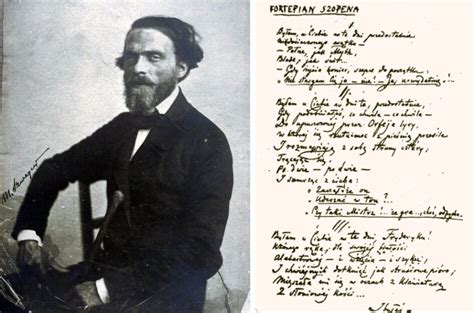 FORTEPIAN SZOPENA
I.
Byłem u Ciebie w te dni przedostatnie
niedocieczonego wątku —
— Pełne, jak Myth,
Blade, jak świt...
— Gdy życia koniec szepce do początku:
"Nie stargam Cię ja — nie! — Ja, u-wydatnię!...
II.
Byłem u Ciebie w dni te, przedostatnie,
Gdy podobniałeś — co chwila — co chwila —
Do upuszczonej przez Orfeja liry,
W której się rzutu-moc z pieśnią przesila
I rozmawiają z sobą struny cztéry,
Trącając się,
Po dwie — po dwie —
I szemrząc z cicha:
"Zacząłże on
"Uderzać w ton?...
"Czy taki Mistrz!... że gra... choć, odpycha?..
III.
Byłem u Ciebie w te dni Fryderyku!
Którego ręka, dla swojej białości
Alabastrowej — i wzięcia — i szyku,
I chwiejnych dotknięć jak strusiowe pióro,
Mięszała mi się w oczach z klawiaturą
Z słoniowej kości ...